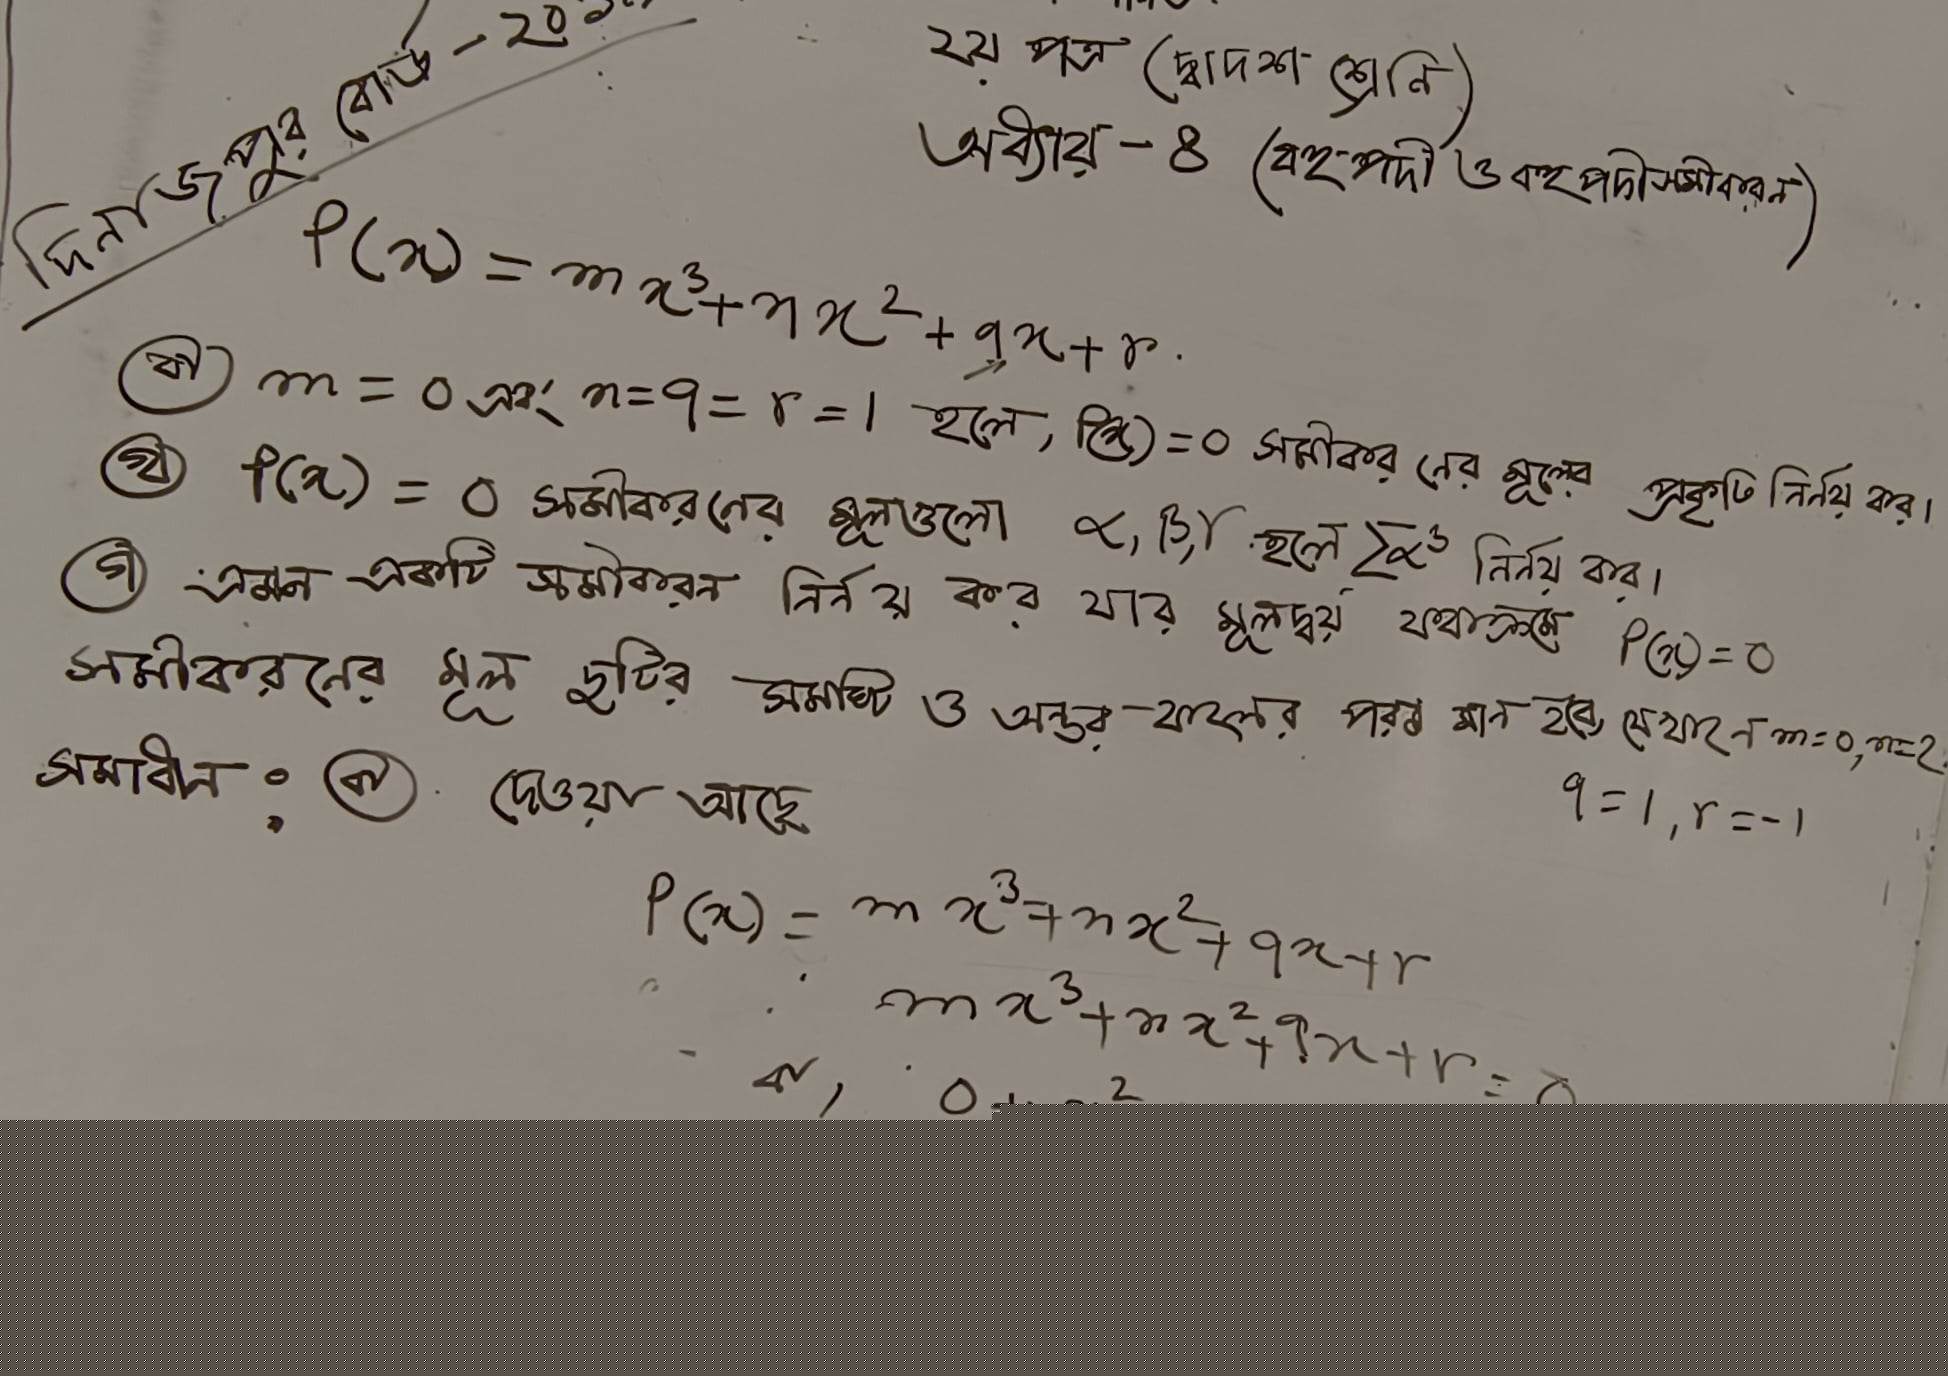 দিনাজপুর বোর্ড - 20
২য় পত্র (দ্বাদশ শ্রেনি)
অধ্যায় - 8 (বহুপদী ও বহুপদী সমীকরন)
P(x) = mx³ + nx² + qx + r.
(ক) m = 0 এবং n = q = r = 1 হলে, P(x) = 0 সমীকরনের মূলের প্রকৃতি নির্নয় কর।
(খ) P(x) = 0 সমীকরনের মূলগুলো α, β, γ হলে Σα³ নির্নয় কর।
(গ) এমন একটি সমীকরন নির্নয় কর যার মূলদ্বয় যথাক্রমে P(x) = 0
সমীকরনের মূল দুটির সমষ্টি ও অন্তর ফলের পরম মান হবে, যেখানে m=0, n=2.
q = 1, r = -1
সমাধান : (ক) দেওয়া আছে
P(x) = mx³ + nx² + qx + r
mx³ + nx² + qx + r = 0
বা, 0 +